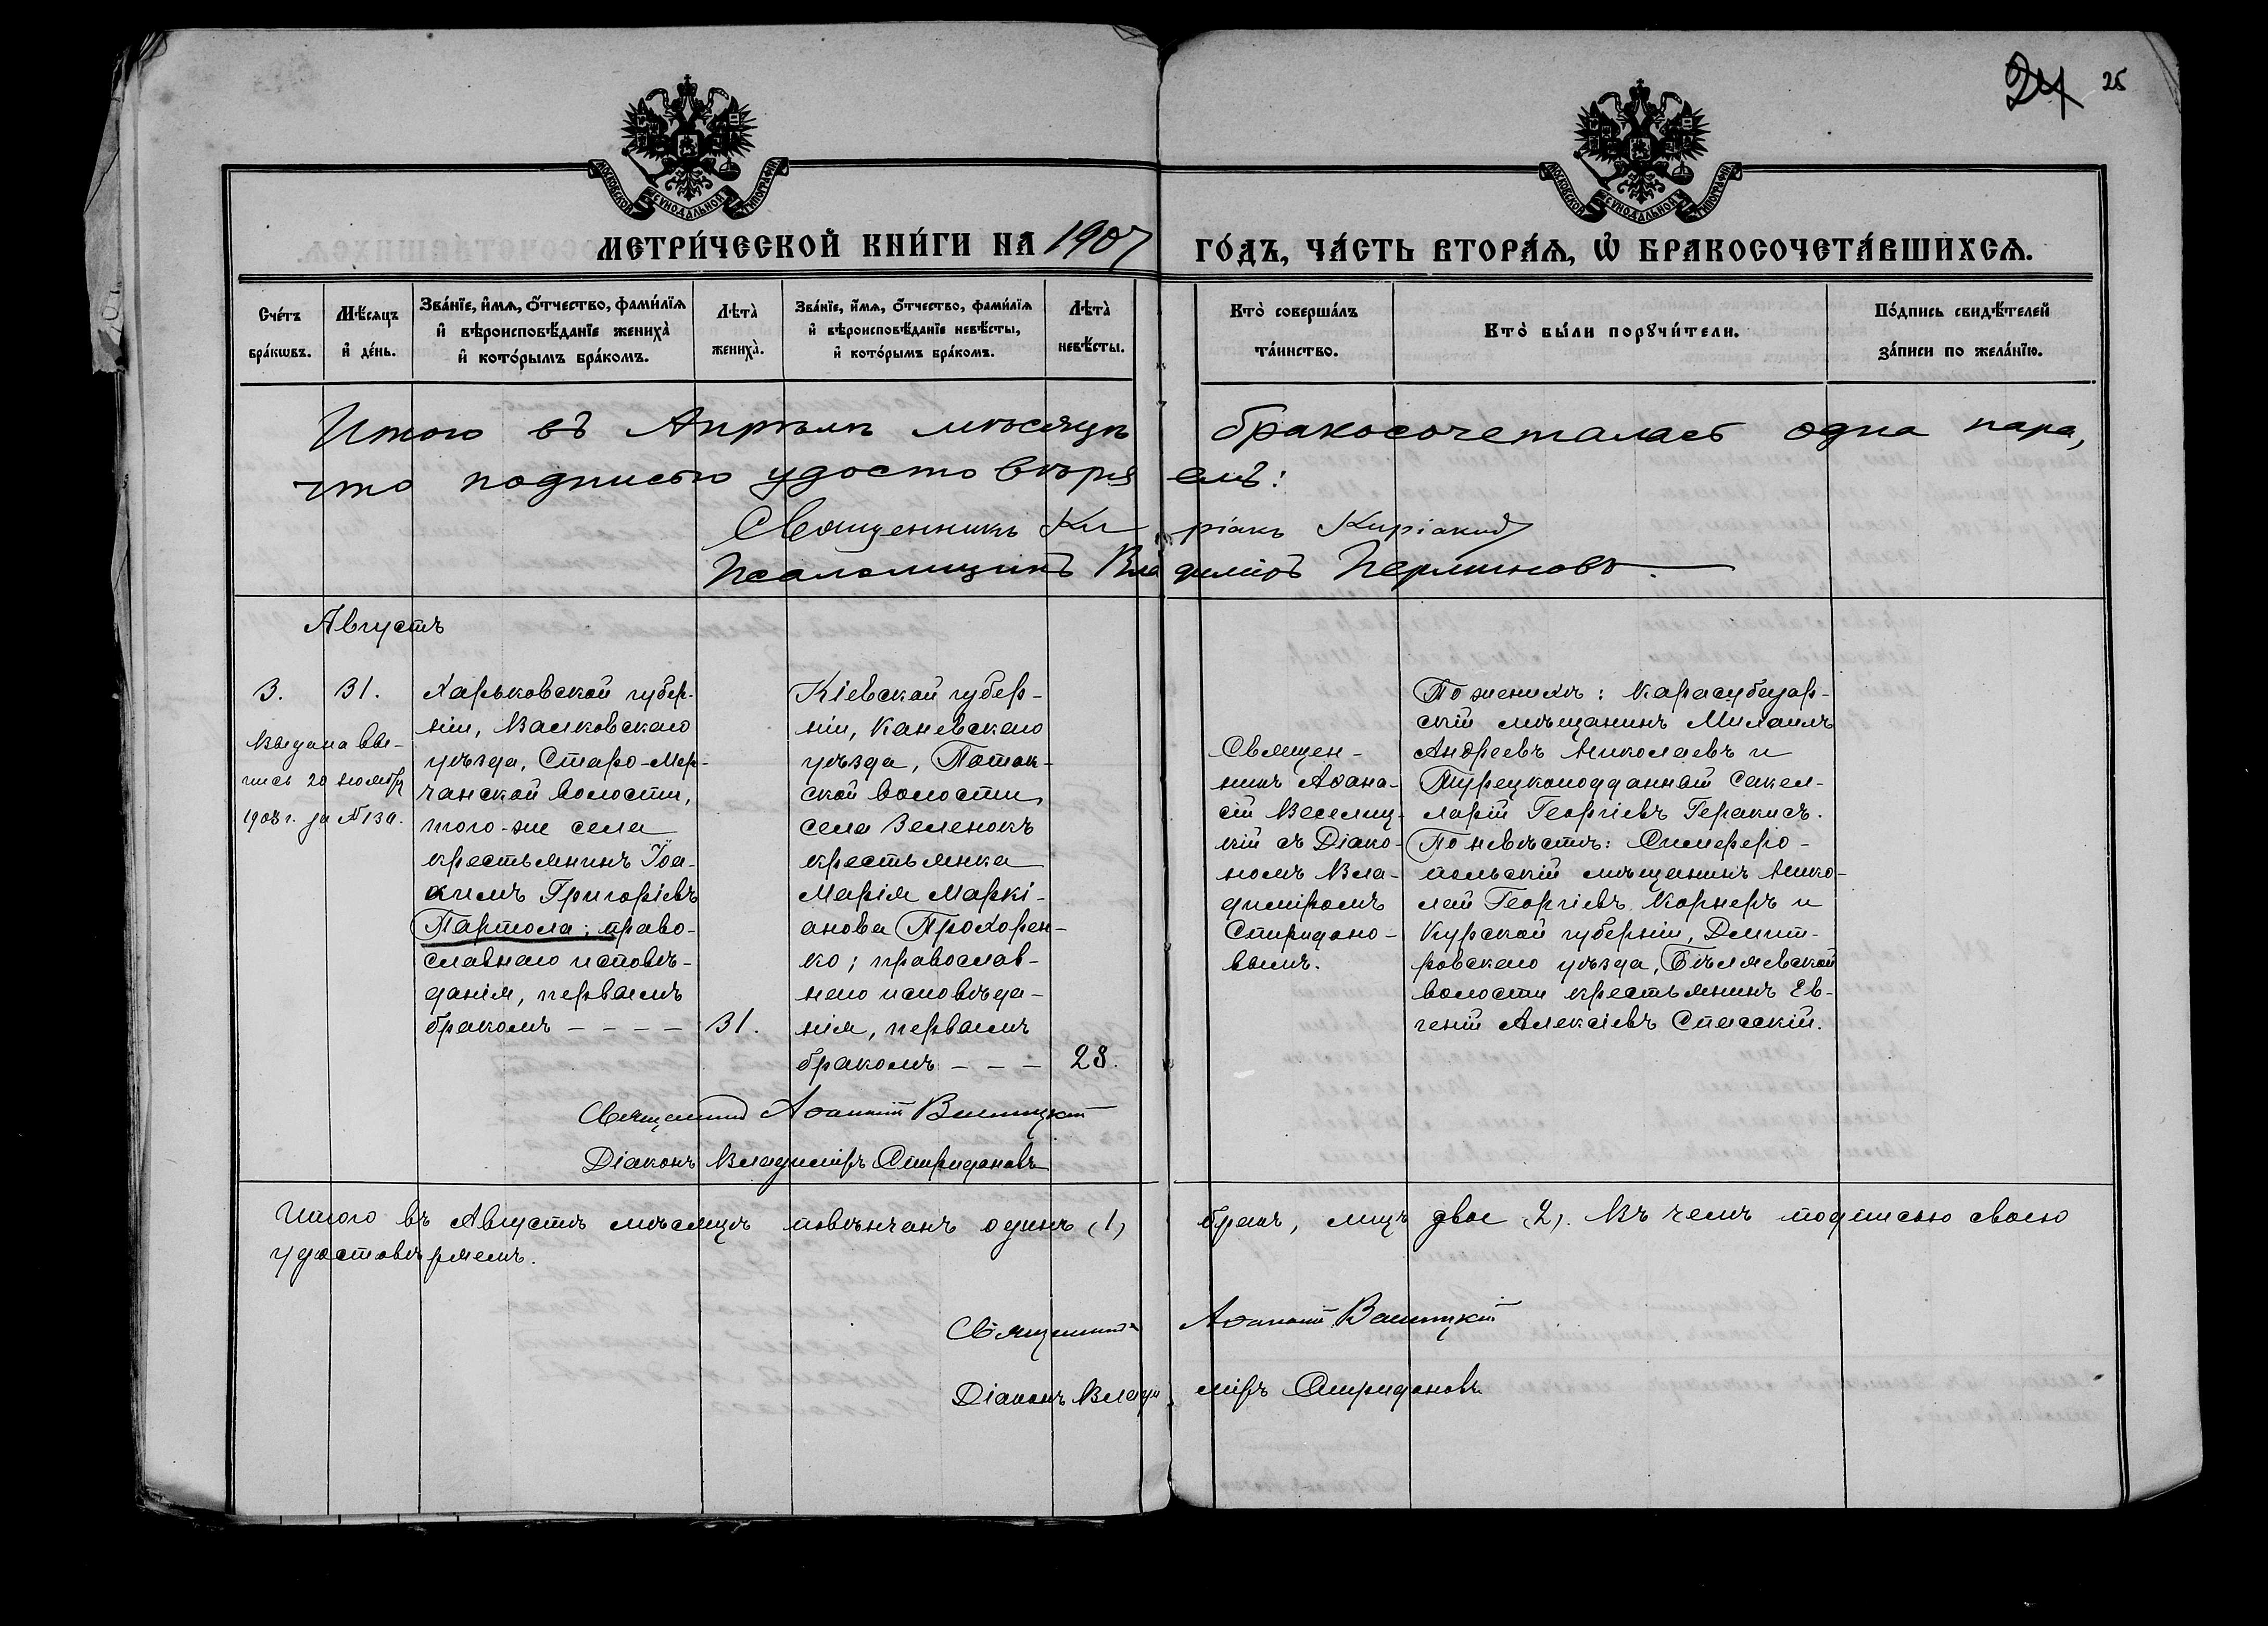 24 25
МОСКОВСКОЙ СѴНОДАЛЬНОЙ ТИПОГРАФІИ
МОСКОВСКОЙ СѴНОДАЛЬНОЙ ТИПОГРАФІИ
МЕТРИ́ЧЕСКОЙ КНИ́ГИ НА 1907 ГО́ДЪ, ЧА́СТЬ ВТОРА́Ѧ, Ѡ҆ БРАКОСОЧЕТА́ВШИХСѦ.
Сче́тъ
бра́кѡвъ.
Мѣ́сѧцъ
и҆ де́нь.
Зва́нїе, и҆́мѧ, ѻ҆́тчество, фами́лїѧ
и҆ вѣроисповѣ́данїе жениха̀
и҆ кото́рымъ бра́комъ.
Лѣта̀
жениха̀.
Зва́нїе, и҆́мѧ, ѻ҆́тчество, фами́лїѧ
и҆ вѣроисповѣ́данїе невѣ́сты,
и҆ кото́рымъ бра́комъ.
Лѣта̀
невѣ́сты.
Кто̀ соверша́лъ
та́инство.
Кто̀ бы́ли порꙋчи́тели.
По́дпись свидѣ́телей
за́писи по жела́нїю.
Итого въ Апрѣлѣ мѣсяцѣ бракосочеталась одна пара,
что подписью удостовѣряемъ:
Священникъ Киріакъ Киріакиди
Псаломщикъ Владиміръ Перминовъ.
Августъ
3. 31.
Выдана вы-
пись 20 ноября
1908 г. за № 130.
Харьковской губер-
ніи, Валковскаго
уѣзда, Старо-Мер-
чанской волости,
того-же села
крестьянинъ Іоа-
кимъ Григоріевъ
Партола; право-
славнаго исповѣ-
данія, первымъ
бракомъ - - - - 31.
Кіевской губер-
ніи, Каневскаго
уѣзда, Поток-
ской волости,
села Зеленокъ
крестьянка
Марія Маркі-
анова Прохорен-
ко; православ-
наго исповѣда-
нія, первымъ
бракомъ - - - 28.
Священ-
никъ Аѳана-
сій Веселиц-
кій съ Діако-
номъ Вла-
диміромъ
Спиридоно-
вымъ.
По женихѣ: Карасубазар-
скій мѣщанинъ Михаилъ
Андреевъ Николаевъ и
Турецкоподданный Сакел-
ларій Георгіевъ Геракисъ.
По невѣстѣ: Симферо-
польскій мѣщанинъ Нико-
лай Георгіевъ Корнеръ и
Курской губерніи, Дмит-
ровскаго уѣзда, Бѣляевской
волости крестьянинъ Ев-
геній Алексіевъ Спасскій.
Священникъ Аѳанасій Веселицкій
Діаконъ Владиміръ Спиридоновъ
Итого въ Августѣ мѣсяцѣ повѣнчанъ одинъ (1) бракъ, лицъ двое (2). Въ чемъ подписью своею
удостовѣряемъ.
Священникъ Аѳанасій Веселицкій
Діаконъ Владиміръ Спиридоновъ